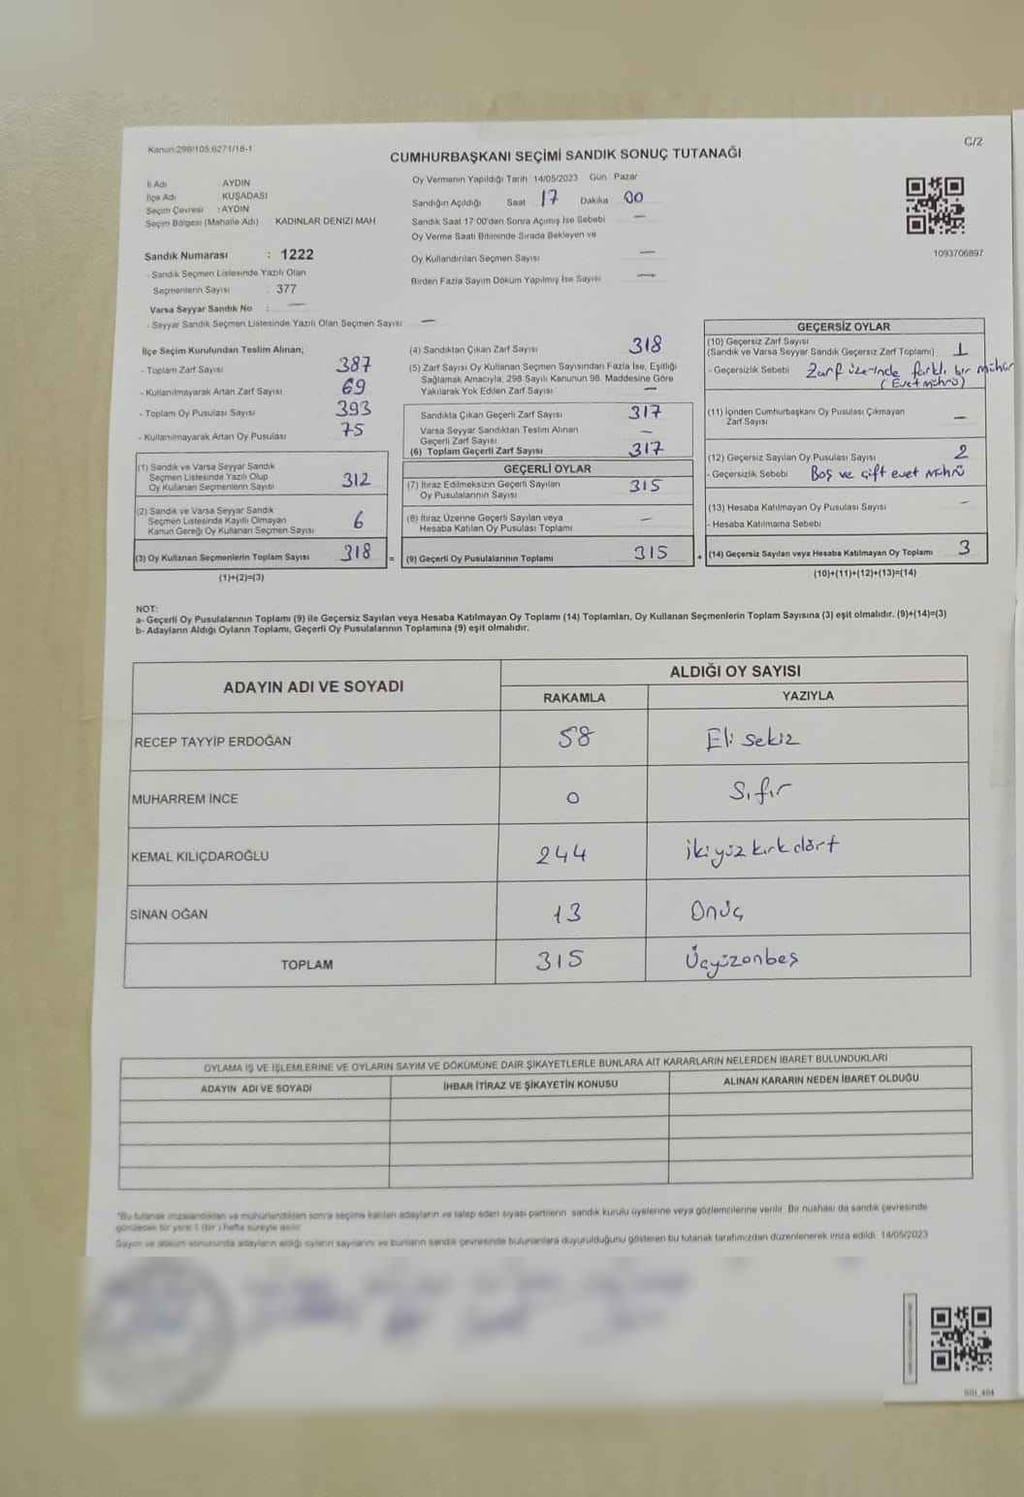 Kanun:298/105;6271/18-1
C/2
CUMHURBAŞKANI SEÇİMİ SANDIK SONUÇ TUTANAĞI
İl Adı AYDIN
İlçe Adı KUŞADASI
Seçim Çevresi : AYDIN
Seçim Bölgesi (Mahalle Adı) KADINLAR DENIZI MAH
Oy Vermenin Yapıldığı Tarih 14/05/2023 Gün Pazar
Sandığın Açıldığı Saat 17 Dakika 00
Sandık Saat 17:00'dan Sonra Açılmış İse Sebebi —
Oy Verme Saati Bitiminde Sırada Bekleyen ve
Oy Kullandırılan Seçmen Sayısı —
Birden Fazla Sayım Döküm Yapılmış İse Sayısı —
1093706897
Sandık Numarası : 1222
- Sandık Seçmen Listesinde Yazılı Olan
Seçmenlerin Sayısı : 377
Varsa Seyyar Sandık No : —
- Seyyar Sandık Seçmen Listesinde Yazılı Olan Seçmen Sayısı —
İlçe Seçim Kurulundan Teslim Alınan;
- Toplam Zarf Sayısı 387
- Kullanılmayarak Artan Zarf Sayısı 69
- Toplam Oy Pusulası Sayısı 393
- Kullanılmayarak Artan Oy Pusulası 75
(1) Sandık ve Varsa Seyyar Sandık
Seçmen Listesinde Yazılı Olup
Oy Kullanan Seçmenlerin Sayısı 312
(2) Sandık ve Varsa Seyyar Sandık
Seçmen Listesinde Kayıtlı Olmayan
Kanun Gereği Oy Kullanan Seçmen Sayısı 6
(3) Oy Kullanan Seçmenlerin Toplam Sayısı 318 =
(1)+(2)=(3)
(4) Sandıktan Çıkan Zarf Sayısı 318
(5) Zarf Sayısı Oy Kullanan Seçmen Sayısından Fazla İse, Eşitliği
Sağlamak Amacıyla, 298 Sayılı Kanunun 98. Maddesine Göre
Yakılarak Yok Edilen Zarf Sayısı —
Sandıkta Çıkan Geçerli Zarf Sayısı 317
Varsa Seyyar Sandıktan Teslim Alınan
Geçerli Zarf Sayısı —
(6) Toplam Geçerli Zarf Sayısı 317
GEÇERLİ OYLAR
(7) İtiraz Edilmeksizin Geçerli Sayılan
Oy Pusulalarının Sayısı 315
(8) İtiraz Üzerine Geçerli Sayılan veya
Hesaba Katılan Oy Pusulası Toplamı —
(9) Geçerli Oy Pusulalarının Toplamı 315 +
GEÇERSİZ OYLAR
(10) Geçersiz Zarf Sayısı
(Sandık ve Varsa Seyyar Sandık Geçersiz Zarf Toplamı) 1
- Geçersizlik Sebebi Zarf üzerinde farklı bir mühür
(Evet mührü)
(11) İçinden Cumhurbaşkanı Oy Pusulası Çıkmayan
Zarf Sayısı —
(12) Geçersiz Sayılan Oy Pusulası Sayısı 2
- Geçersizlik Sebebi Boş ve çift evet mührü
(13) Hesaba Katılmayan Oy Pusulası Sayısı —
- Hesaba Katılmama Sebebi
(14) Geçersiz Sayılan veya Hesaba Katılmayan Oy Toplamı 3
(10)+(11)+(12)+(13)=(14)
NOT:
a- Geçerli Oy Pusulalarının Toplamı (9) ile Geçersiz Sayılan veya Hesaba Katılmayan Oy Toplamı (14) Toplamları, Oy Kullanan Seçmenlerin Toplam Sayısına (3) eşit olmalıdır. (9)+(14)=(3)
b- Adayların Aldığı Oyların Toplamı, Geçerli Oy Pusulalarının Toplamına (9) eşit olmalıdır.
ADAYIN ADI VE SOYADI
ALDIĞI OY SAYISI
RAKAMLA YAZIYLA
RECEP TAYYİP ERDOĞAN 58 Eli sekiz
MUHARREM İNCE 0 Sıfır
KEMAL KILIÇDAROĞLU 244 ikiyüz kırk dört
SİNAN OĞAN 13 Onüç
TOPLAM 315 Üçyüzonbeş
OYLAMA İŞ VE İŞLEMLERİNE VE OYLARIN SAYIM VE DÖKÜMÜNE DAİR ŞİKAYETLERLE BUNLARA AİT KARARLARIN NELERDEN İBARET BULUNDUKLARI
ADAYIN ADI VE SOYADI İHBAR İTİRAZ VE ŞİKAYETİN KONUSU ALINAN KARARIN NEDEN İBARET OLDUĞU
*Bu tutanak imzalandıktan ve mühürlendikten sonra seçime katılan adayların ve talep eden siyasi partilerin sandık kurulu üyelerine veya gözlemcilerine verilir. Bir nüshası da sandık çevresinde
görülecek bir yere 1 (bir) hafta süreyle asılır.
Sayım ve döküm sonucunda adayların aldığı oyların sayılarını ve bunların sandık çevresinde bulunanlara duyurulduğunu gösteren bu tutanak tarafımızdan düzenlenerek imza edildi. 14/05/2023